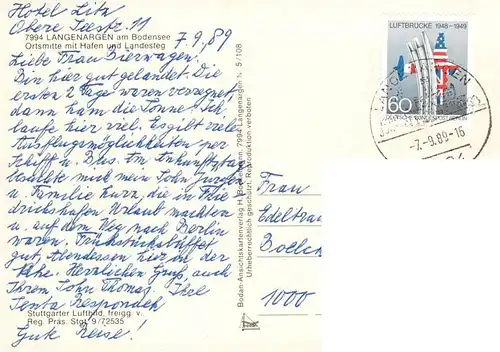 Hotel Litz
Obere Seestr. 11
7994 LANGENARGEN am Bodensee
Ortsmitte mit Hafen und Landesteg
7.9.89
Liebe Frau Bierwagen!
Bin hier gut gelandet. Die
ersten 2 Tage waren verregnet,
dann kam die Sonne. Ich
laufe hier viel. Es gibt viele
Ausflugsmöglichkeiten per
Schiff u. Bus. Am Ankunftstag
besuchte mich mein Sohn Jürgen
u. Familie kurz, die in Frie
drichshafen Urlaub machten
u. auf dem Weg nach Berlin
waren. Frühstücksbüffet
gut, Abendessen hier in der
Nähe. Herzlichen Gruß, auch
Ihrem Sohn Thomas. Ihre
Senta Respondek
Stuttgarter Luftbild, freigg. v.
Reg. Präs. Stgt. 9/72535
Gute Reise!
N 5/108
Bodan-Ansichtskartenverlag H. 7994 Langenargen
Urheberrechtlich geschützt. Reproduktion verboten
LUFTBRÜCKE 1948-1949
60
DEUTSCHE BUNDESPOST BERLIN
LANGENARGEN
-7.-9.89-16
Frau
Edeltrau
Boelck
1000